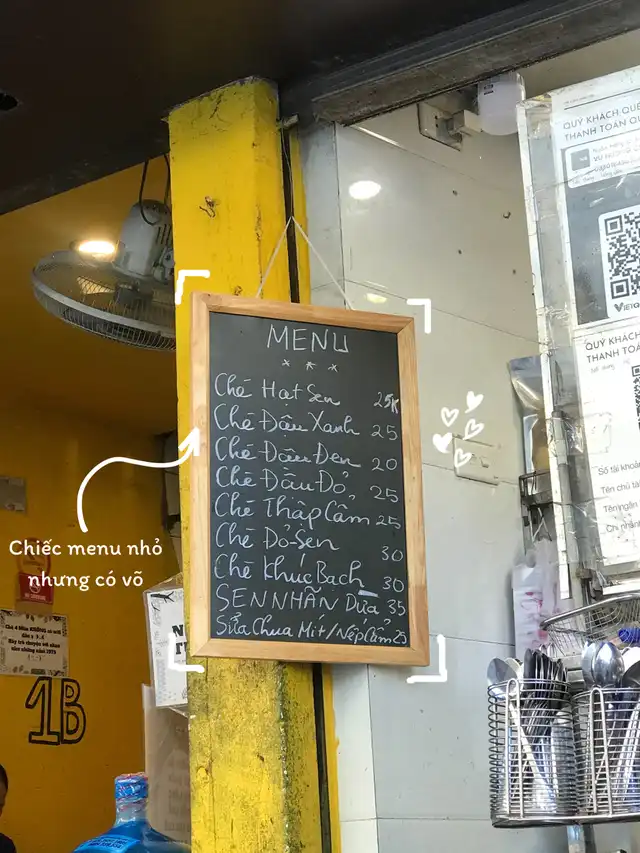 MENU
Chè Hạt Sen 25K
Chè Đậu Xanh 25
Chè Đậu Đen 20
Chè Đậu Đỏ 25
Chè Thập Cẩm 25
Chè Đỏ-Sen 30
Chè Khúc Bạch 30
SEN NHÃN Dừa 35
Sữa Chua Mít/Nếp Cẩm 25
Chiếc menu nhỏ
nhưng có võ
1B
QUÝ KHÁCH QUÉ
THANH TOÁN QU
VIETQ
QUÝ KHÁCH
THANH TOÁN
Số tài khoản
Tên chủ tà
Tên ngân
Chi nhánh